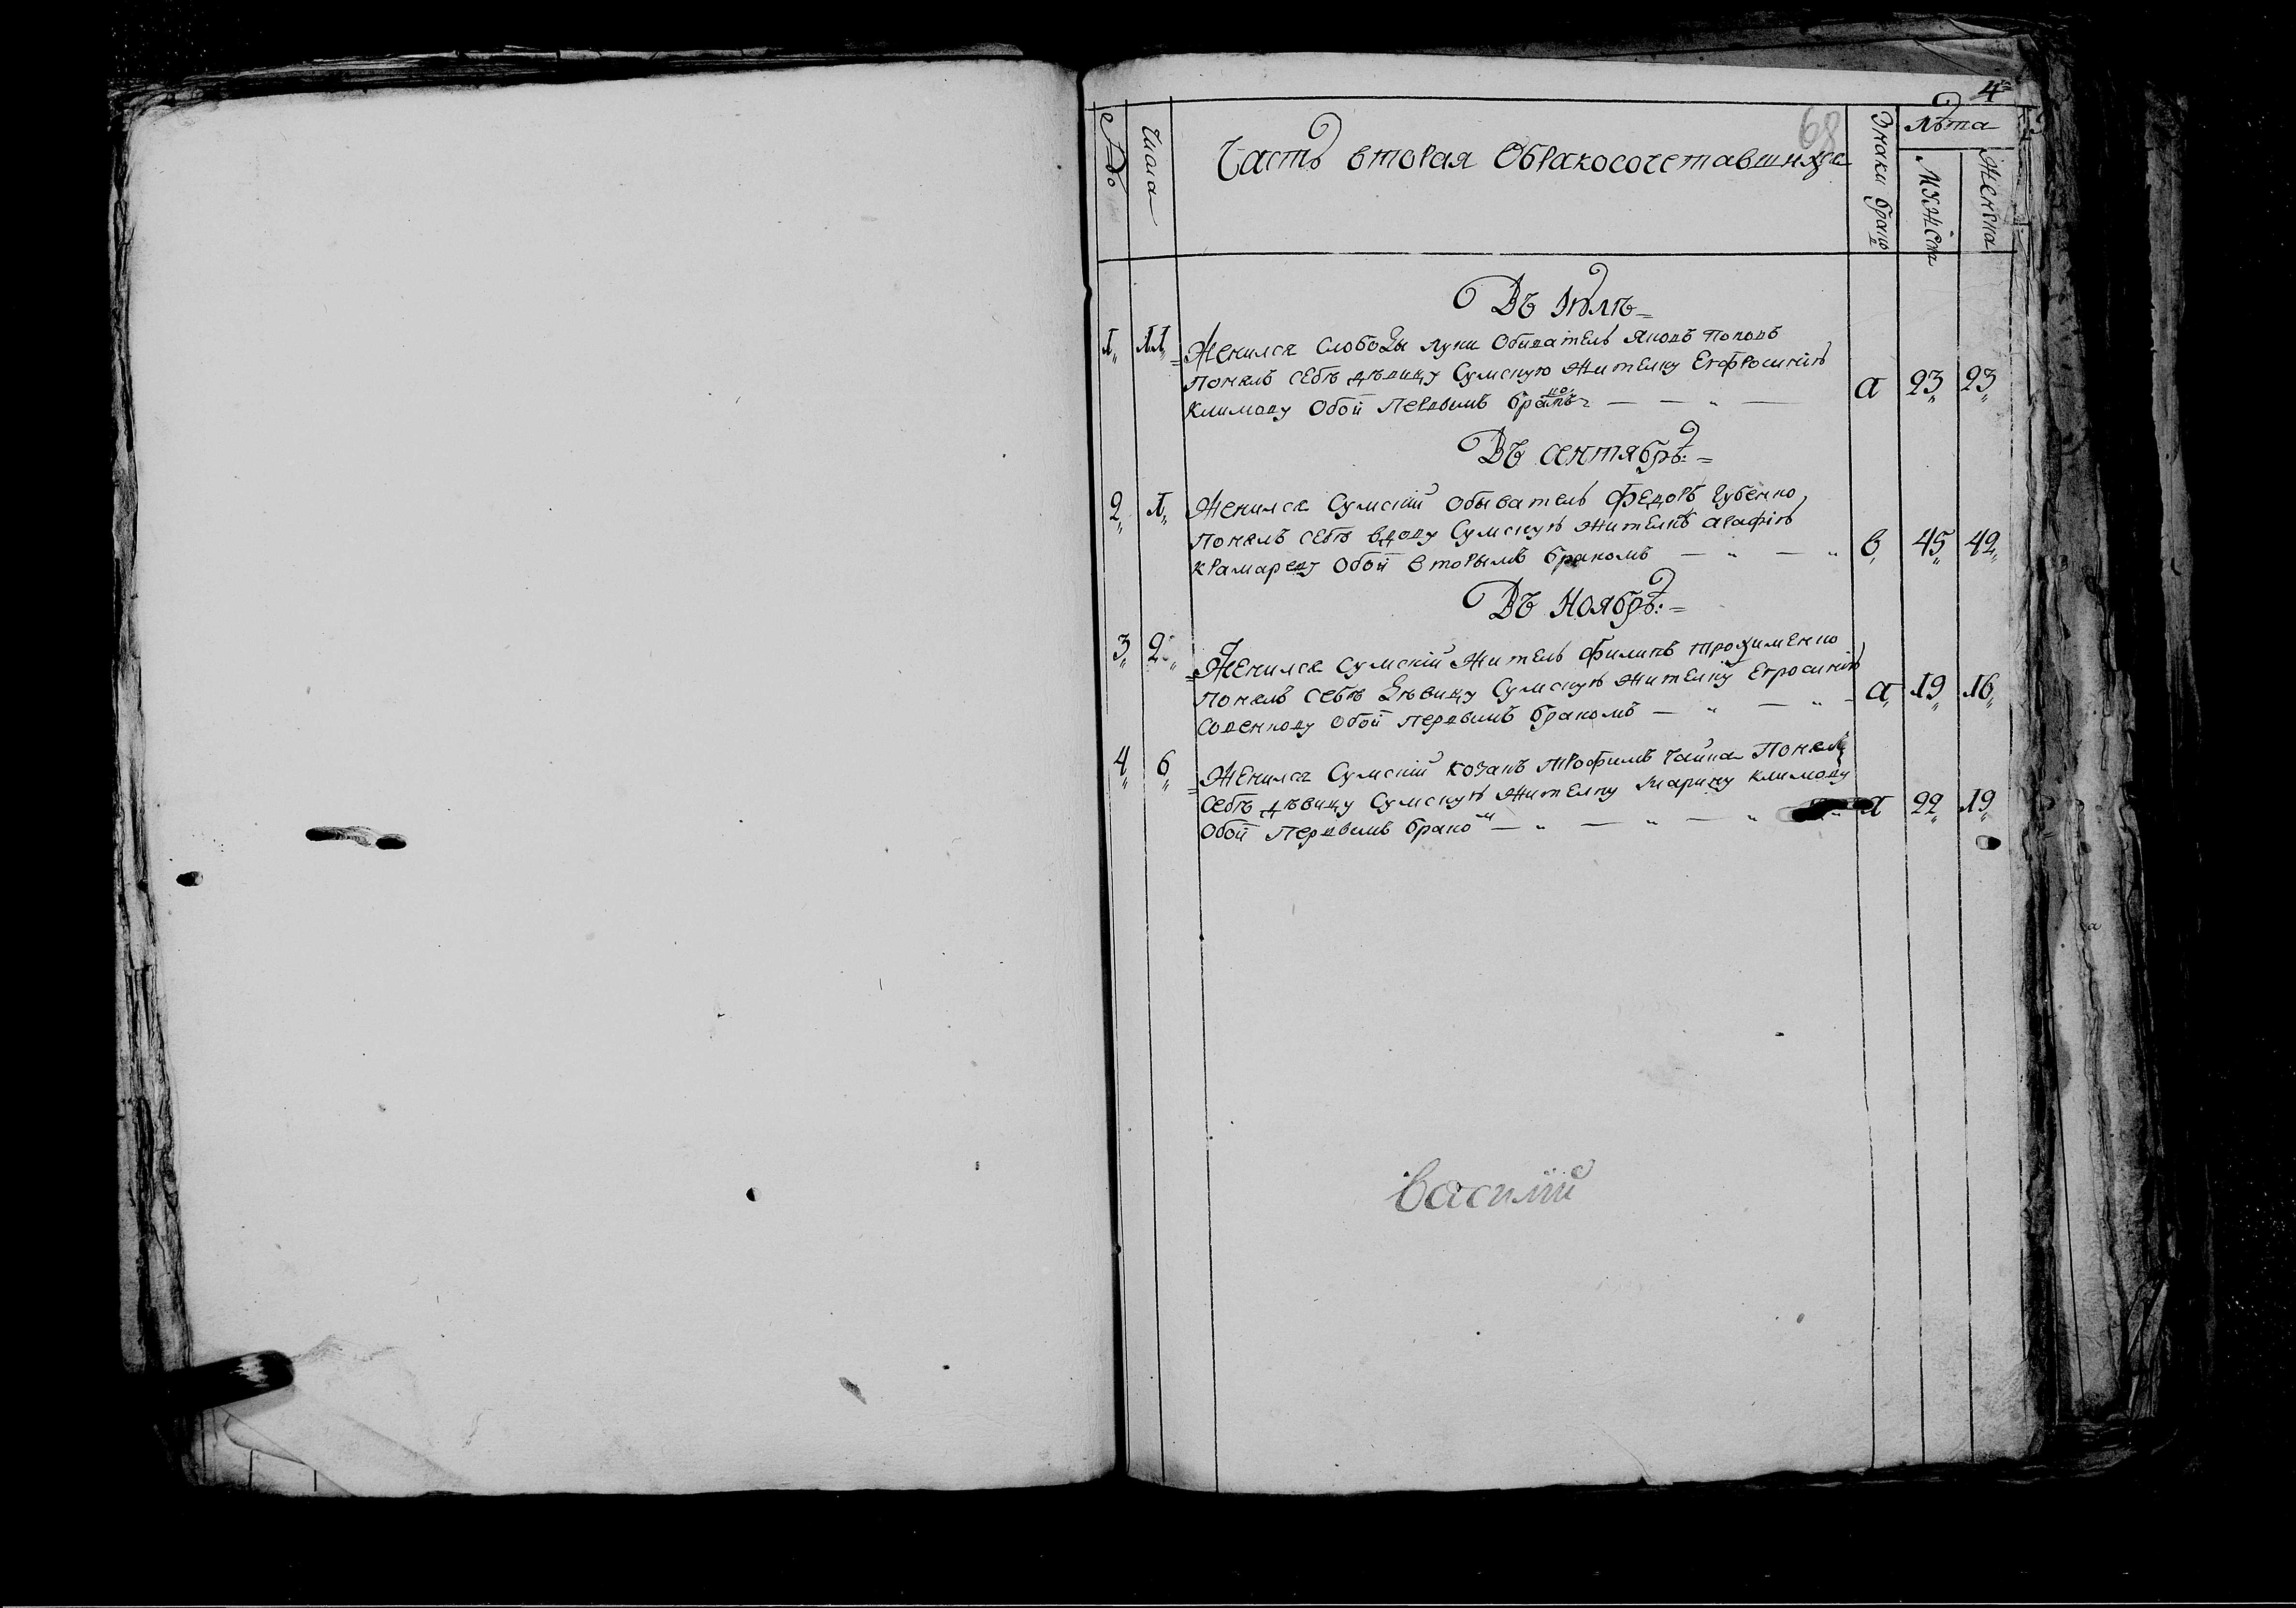 4
68
№
Числа
Часть вторая Обракосочетавшихся
Знаки брако
Лѣта
Мужска
Женска
Въ Июлѣ
1 11 Женился слободы луки Обиватель Яковъ Поповъ
Понялъ себѣ дѣвицу Сумскую жителку Евфросинію
Климову Обои Первымъ бракомъ а 23 23
Въ сентябрѣ
2 1 Женился Сумскій Обыватель Федоръ Губенко
Понялъ себѣ вдову Сумскую жителкѣ агафію
крамареву Обои вторымъ бракомъ в 45 42
Въ Ноябрѣ
3 2 Женился Сумскій житель Филипъ трохименко
Понялъ себѣ дѣвицу Сумскую жителку Ефросинію
Совенкову Обои первымъ бракомъ а 19 16
4 6 Женился Сумскій козакъ трофимъ Чайка Понялъ
себѣ дѣвицу Сумскую жителку марину климову
Обои Первымъ бракомъ а 22 19
василий